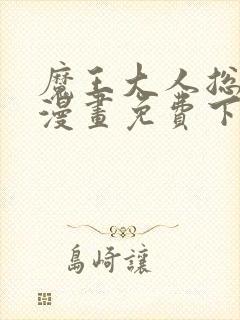 魔王大人総
漫畫免費下
島崎讓